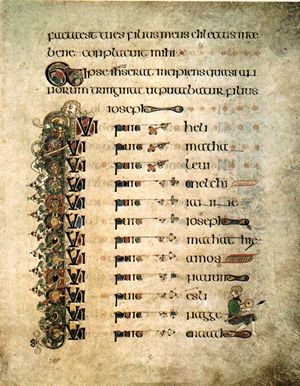 factaest tues filius meus dilectus inte
bene conplacuit mihi
ipse ihs erat incipiens quasi an
norum triginta utputabatur filius
ioseph
Qui fuit heli
Qui fuit matha
Qui fuit leui
Qui fuit melchi
Qui fuit
Qui fuit ioseph
Qui fuit mathathie
Qui fuit amos
Qui fuit nauum
Qui fuit esli
Qui fuit nagge
Qui fuit